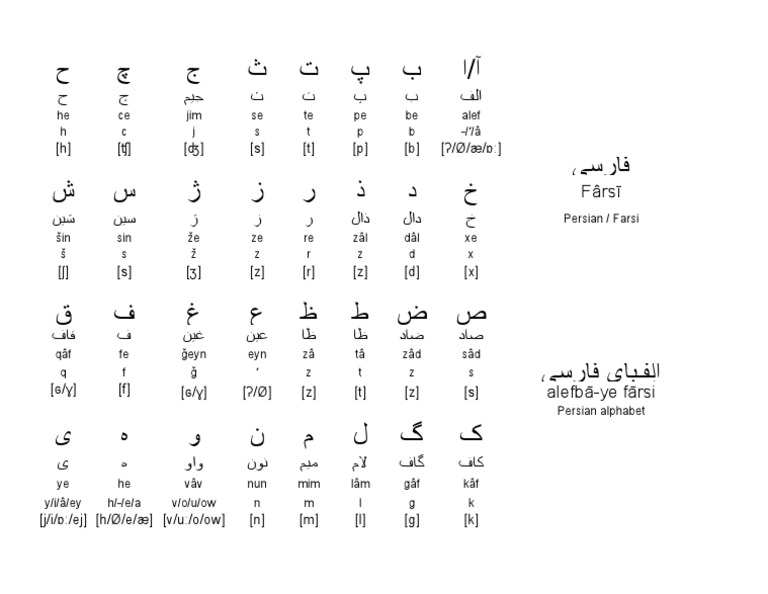 آ/ا ب پ ت ث ج چ ح
الف ب پ ت ث جیم چ ح
he ce jim se te pe be alef
h c j s t p b -/’/â
[h] [ʧ] [ʤ] [s] [t] [p] [b] [ʔ/Ø/æ/ɒː]
فارسی
Fârsī
Persian / Farsi
خ د ذ ر ز ژ س ش
خ دال ذال ر ز ژ سین شین
šin sin že ze re zâl dâl xe
š s ž z r z d x
[ʃ] [s] [ʒ] [z] [r] [z] [d] [x]
ص ض ط ظ ع غ ف ق
صاد ضاد ظا ظا عین غین ف قاف
qâf fe ğeyn eyn zâ tâ zâd sâd
q f ğ ‘ z t z s
[ɢ/ɣ] [f] [ɢ/ɣ] [ʔ/Ø] [z] [t] [z] [s]
الفبای فارسی
alefbā-ye fārsi
Persian alphabet
ک گ ل م ن و ه ی
کاف گاف لام میم نون واو ه ی
ye he vâv nun mim lâm gâf kâf
y/i/â/ey h/-/e/a v/o/u/ow n m l g k
[j/i/ɒː/ej] [h/Ø/e/æ] [v/uː/o/ow] [n] [m] [l] [g] [k]